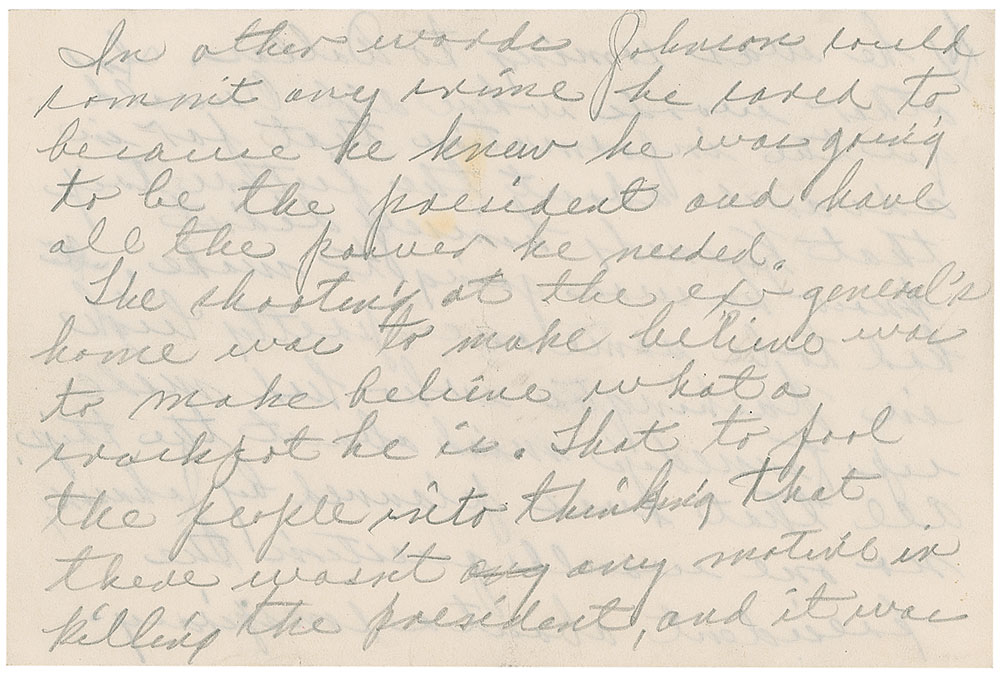 In other words Johnson could
commit any crime he cared to
because he knew he was going
to be the president and have
all the power he needed.
The shooting at the ex-general's
home was to make believe was
to make believe what a
crackpot he is. That to fool
the people into thinking that
there wasn't any any motive in
killing the president, and it was